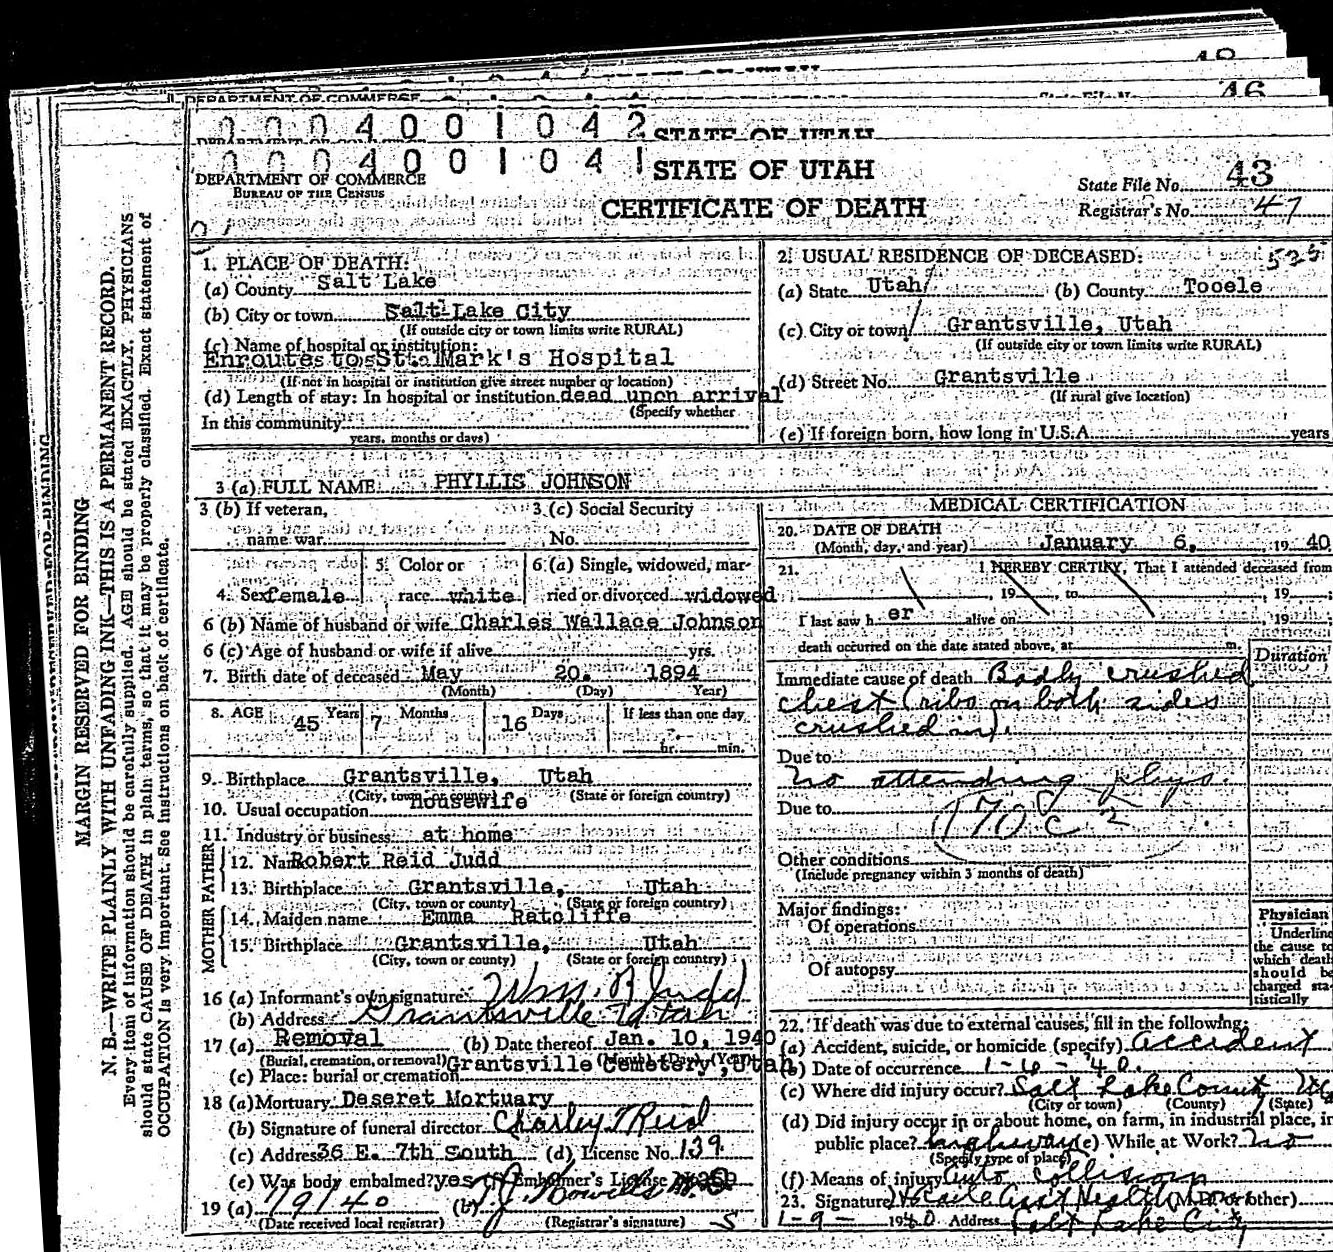 48
46
DEPARTMENT OF COMMERCE
0 0 0 4 0 0 1 0 4 2 STATE OF UTAH
0 0 0 4 0 0 1 0 4 1 STATE OF UTAH
DEPARTMENT OF COMMERCE
BUREAU OF THE CENSUS
CERTIFICATE OF DEATH
State File No. 43
Registrar's No. 47
MARGIN RESERVED FOR BINDING
N. B.—WRITE PLAINLY WITH UNFADING INK—THIS IS A PERMANENT RECORD.
Every item of information should be carefully supplied. AGE should be stated EXACTLY. PHYSICIANS
should state CAUSE OF DEATH in plain terms, so that it may be properly classified. Exact statement of
OCCUPATION is very important. See instructions on back of certificate.
1. PLACE OF DEATH:
(a) County Salt Lake
(b) City or town Salt Lake City
(If outside city or town limits write RURAL)
(c) Name of hospital or institution:
Enroute to St. Mark's Hospital
(If not in hospital or institution give street number or location)
(d) Length of stay: In hospital or institution dead upon arrival
(Specify whether
In this community
years, months or days)
2. USUAL RESIDENCE OF DECEASED: 525
(a) State Utah (b) County Tooele
(c) City or town Grantsville, Utah
(If outside city or town limits write RURAL)
(d) Street No. Grantsville
(If rural give location)
(e) If foreign born, how long in U.S.A. years
3 (a) FULL NAME PHYLLIS JOHNSON
3 (b) If veteran, 3 (c) Social Security
name war No.
4. Sex female 5. Color or race white 6 (a) Single, widowed, married or divorced widowed
6 (b) Name of husband or wife Charles Wallace Johnson
6 (c) Age of husband or wife if alive yrs.
7. Birth date of deceased May 20, 1894
(Month) (Day) Year)
8. AGE 45 Years 7 Months 16 Days If less than one day
hr. min.
9. Birthplace Grantsville, Utah
(City, town or county) (State or foreign country)
10. Usual occupation housewife
11. Industry or business at home
FATHER
12. Name Robert Reid Judd
13. Birthplace Grantsville, Utah
(City, town or county) (State or foreign country)
MOTHER
14. Maiden name Emma Ratcliffe
15. Birthplace Grantsville, Utah
(City, town or county) (State or foreign country)
16 (a) Informant's own signature Wm. B Judd
(b) Address Grantsville Utah
17 (a) Removal (b) Date thereof Jan. 10, 1940
(Burial, cremation, or removal) (Month) (Day) (Year)
(c) Place: burial or cremation Grantsville Cemetery, Utah
18 (a) Mortuary Deseret Mortuary
(b) Signature of funeral director
(c) Address 36 E. 7th South (d) License No. 139
(e) Was body embalmed? yes (f) Embalmer's License No.
19 (a) 1/9/40 (b)
(Date received local registrar) (Registrar's signature)
MEDICAL CERTIFICATION
20. DATE OF DEATH
(Month, day, and year) January 6, 19 40
21. I HEREBY CERTIFY, That I attended deceased from
, 19 , to , 19 ;
I last saw h er alive on , 19 ;
death occurred on the date stated above, at m.
Duration
Immediate cause of death Badly crushed
chest (ribs on both sides
crushed in).
Due to
no attending phys.
Due to
170 c 2
Other conditions
(Include pregnancy within 3 months of death)
Major findings:
Of operations
Of autopsy
Physician
Underline
the cause to
which death
should be
charged sta-
tistically
22. If death was due to external causes, fill in the following:
(a) Accident, suicide, or homicide (specify) accident
(b) Date of occurrence 1-6-40.
(c) Where did injury occur? Salt Lake County
(City or town) (County) (State)
(d) Did injury occur in or about home, on farm, in industrial place, in
public place? highway (e) While at Work? no
(Specify type of place)
(f) Means of injury Auto Collision
23. Signature (M.D. or other)
1-9- 1940 Address Salt Lake City